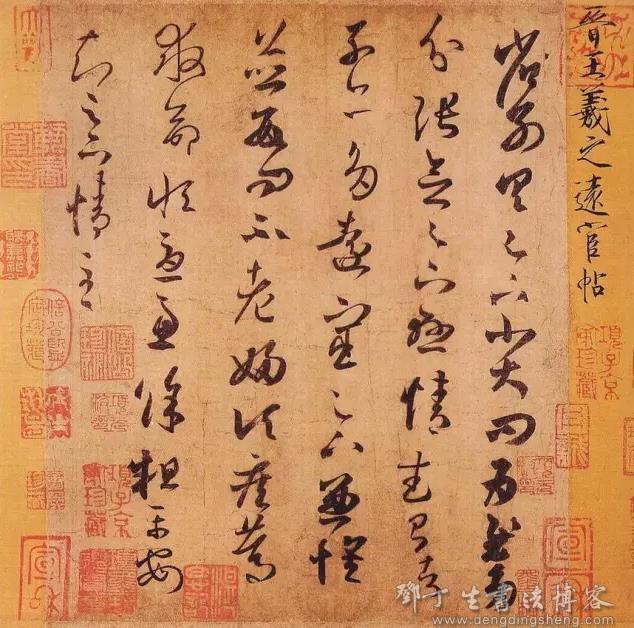 晉王羲之遠宦帖
省別具足下小大問為慰多
分張念足下懸情武昌諸
子亦多遠宦足下兼懷
並數問不老婦頃疾篤
救命恒憂慮餘粗平安
知足下情至
項子京家珍藏
鄧丁生書法博客
www.dengdingsheng.com